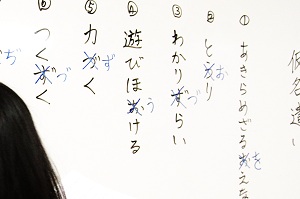 仮名遣い
①あきらめざるをえな
②とおり
③わかりづらい
④遊びほうける
⑤力ずく
⑥つくづく
ぢ